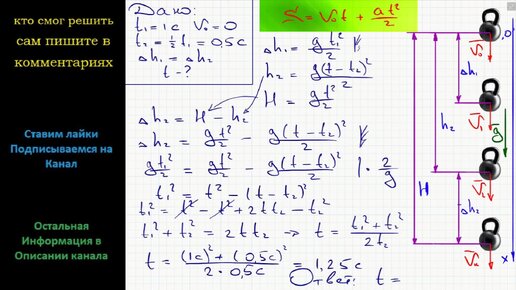 кто смог решить
сам пишите в
комментариях
Ставим лайки
Подписываемся на
Канал
Остальная
Информация в
Описании канала
Дано:
t₁=1c V₀=0
t₂=½t₁=0,5c
Δh₁=Δh₂
t-?
S=V₀t+at²/2
Δh₁=gt₁²/2
h₂=g(t-t₂)²/2
H=gt²/2
Δh₂=H-h₂
Δh₂=gt²/2-g(t-t₂)²/2
gt₁²/2=gt²/2-g(t-t₂)²/2 |·2/g
t₁²=t²-(t-t₂)²
t₁²=t²-t²+2tt₂-t₂²
t₁²+t₂²=2tt₂ → t=t₁²+t₂²/2t₂
t=(1c)²+(0,5c)²/2·0,5c=1,25c
Ответ: t=
0
V₀
Δh₁
V₁
g
h₂
H
Δh₂
x